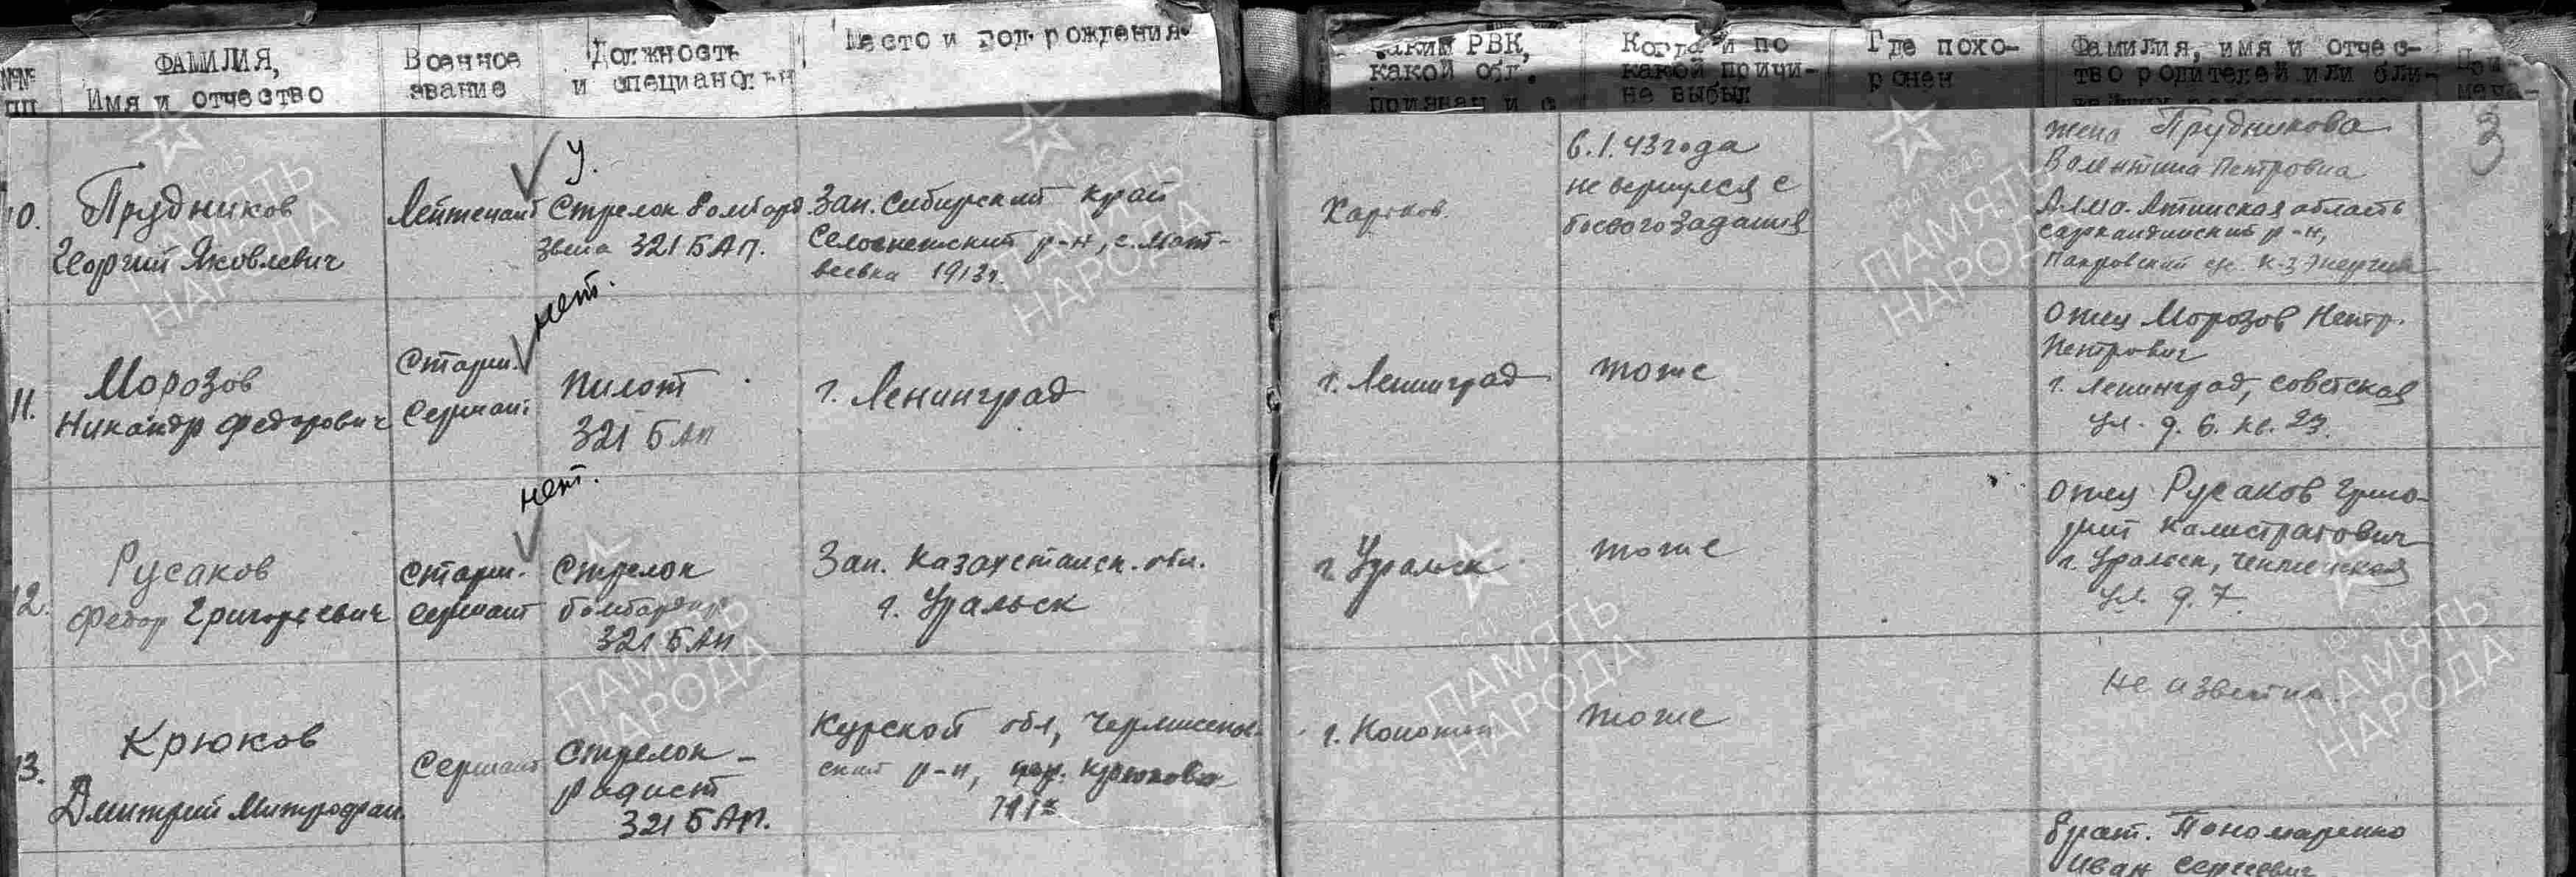 №№ пп
ФАМИЛИЯ,
Имя и отчество
Военное
звание
Должность
и специаность
Место и год рождения
каким РВК,
какой обл.
призван и с
Когда и по
какой причи-
не выбыл
Где похо-
ронен
Фамилия, имя и отчес-
тво родителей или бли-
При-
меча-
3
10.
Прудников
Георгий Яковлевич
Лейтенант
У.
Стрелок бомбард.
звена 321 БАП.
Зап. Сибирский край
р-н, с. Мат-
веевка 1913г.
Харьков.
6.1.43 года
не вернулся с
боевого задания
жена Прудникова
Валентина Петровна
Алма-Атинская область
р-н,
к-з Энергия
11.
Морозов
Никандр Федорович
Старш.
Сержант
нет.
Пилот
321 БАП
г. Ленинград
г. Ленинград
тоже
Отец Морозов
Петрович
г. Ленинград, Советская
ул. д. 6. кв. 23.
12.
Русаков
Федор Григорьевич
Старш.
сержант
нет.
Стрелок
бомбардир
321 БАП
Зап. Казахстанск. обл.
г. Уральск
г. Уральск
тоже
Отец Русаков Григо-
рий Калистратович
г. Уральск,
ул. д. 7.
13.
Крюков
Дмитрий Митрофан.
Сержант
Стрелок-
радист
321 БАП.
Курской обл,
ский р-н, Крюково
г. Конотоп
тоже
Не известны.
брат. Пономаренко
Иван Сергеевич
1941 1945
ПАМЯТЬ
НАРОДА